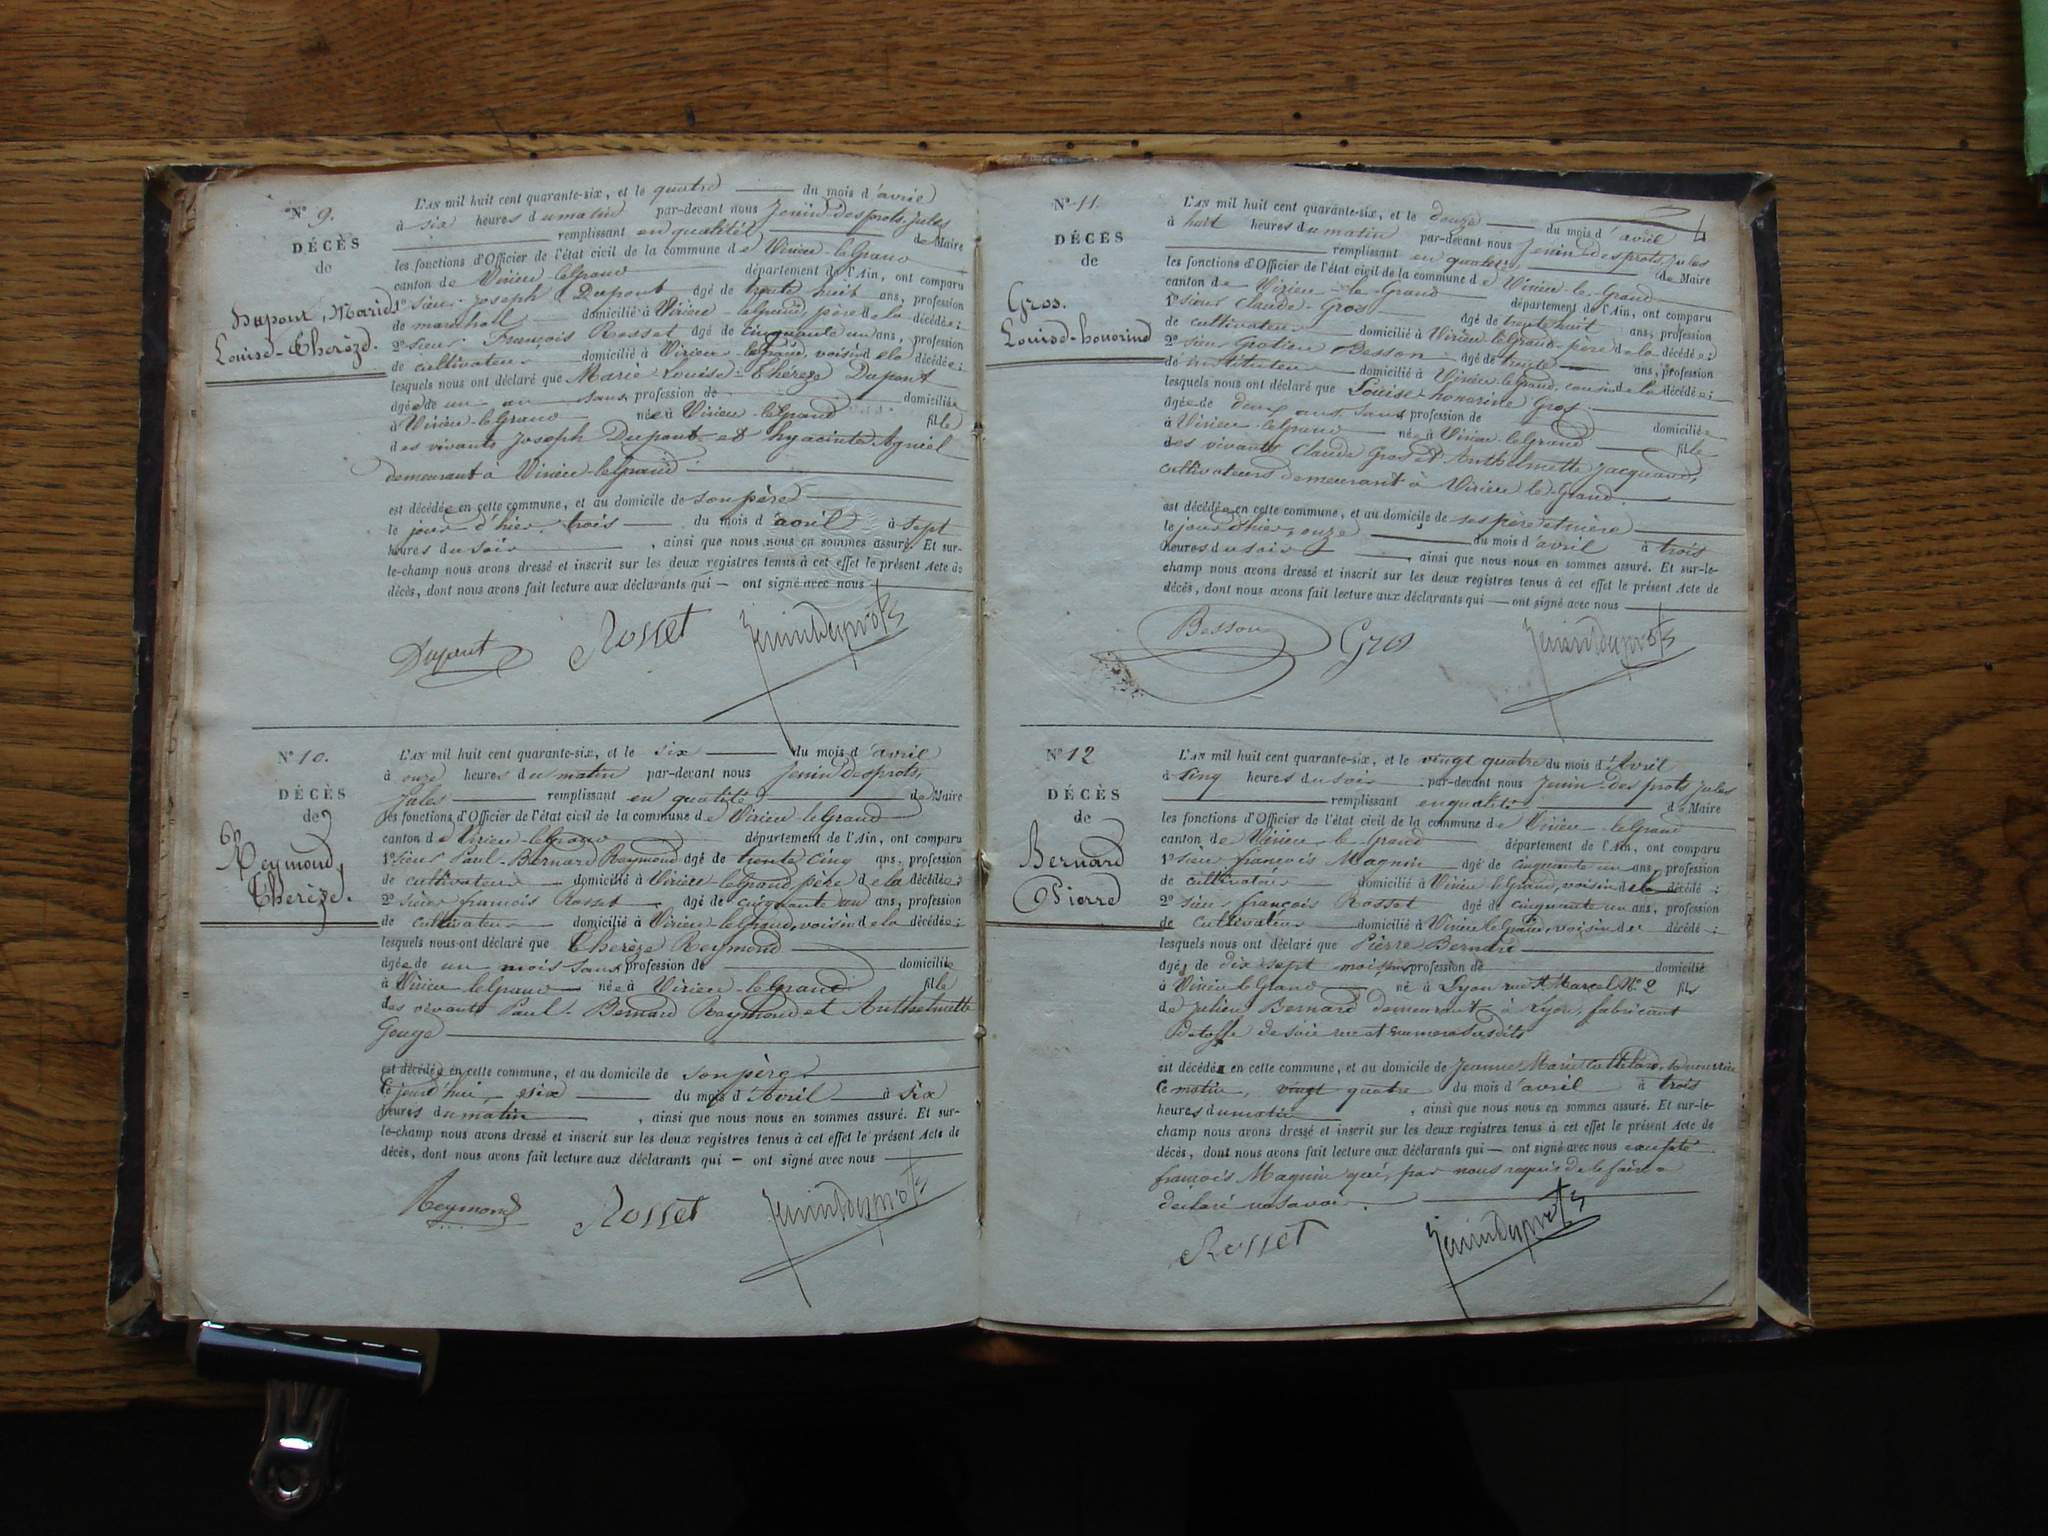 N° 9.
DÉCÈS
de
Dupont, Marie
Louise-Therèze.
L'AN mil huit cent quarante-six, et le quatre du mois d'avril
à six heures du matin par-devant nous Jenin desprots, Jules
remplissant en qualité de Maire
les fonctions d'Officier de l'état civil de la commune de Virieu-le Grand
canton de Virieu-le Grand département de l'Ain, ont comparu
1° sieur Joseph Dupont âgé de trente huit ans, profession
de maréchal domicilié à Virieu-le Grand, père de la décédée;
2° sieur François Rosset âgé de cinquante un ans, profession
de cultivateur domicilié à Virieu-le Grand, voisin de la décédée;
lesquels nous ont déclaré que Marie Louise-Thérèze Dupont
âgée de un an sans profession de domiciliée
à Virieu-le Grand née à Virieu-le Grand fille
des vivants Joseph Dupont et hyacinte Agniel
demeurant à Virieu-le Grand
est décédée en cette commune, et au domicile de son père
le jour d'hier, trois du mois d'avril à sept
heures du soir, ainsi que nous nous en sommes assuré. Et sur-
le-champ nous avons dressé et inscrit sur les deux registres tenus à cet effet le présent Acte de
décès, dont nous avons fait lecture aux déclarants qui — ont signé avec nous
Dupont Rosset Jenindesprots
N° 10.
DÉCÈS
de
Reymond,
Therèze.
L'AN mil huit cent quarante-six, et le six du mois d'avril
à onze heures du matin par-devant nous Jenin desprots,
Jules remplissant en qualité de Maire
les fonctions d'Officier de l'état civil de la commune de Virieu le Grand
canton de Virieu-le Grand département de l'Ain, ont comparu
1° sieur Paul-Bernard Reymond âgé de trente cinq ans, profession
de cultivateur domicilié à Virieu-le Grand, père de la décédée;
2° sieur francois Rosset âgé de cinquante un ans, profession
de cultivateur domicilié à Virieu le Grand, voisin de la décédée;
lesquels nous ont déclaré que Therèze Reymond
âgée de un mois sans profession de domiciliée
à Virieu-le Grand née à Virieu-le Grand fille
des vivants Paul-Bernard Reymond et Anthelmette
Gouge
est décédée en cette commune, et au domicile de son père
Ce jourd'hui, six du mois d'Avril à six
heures du matin, ainsi que nous nous en sommes assuré. Et sur-
le-champ nous avons dressé et inscrit sur les deux registres tenus à cet effet le présent Acte de
décès, dont nous avons fait lecture aux déclarants qui — ont signé avec nous
Reymond Rosset Jenindesprots
N° 11.
DÉCÈS
de
Gros.
Louise-honorine
L'AN mil huit cent quarante-six, et le douze du mois d'avril
à huit heures du matin par-devant nous Jenin desprots, Jules
remplissant en qualité de Maire
les fonctions d'Officier de l'état civil de la commune de Virieu-le-Grand
canton de Virieu-le-Grand département de l'Ain, ont comparu
1° sieur Claude-Gros âgé de trente huit ans, profession
de cultivateur domicilié à Virieu-le Grand père de la décédée;
2° sieur Besson âgé de trente ans, profession
de instituteur domicilié à Virieu-le Grand, cousin de la décédée;
lesquels nous ont déclaré que Louise-honorine Gros
âgée de deux ans, sans profession de domiciliée
à Virieu-le Grand née à Virieu-le Grand fille
des vivants Claude Gros et Anthelmette Jacquand,
cultivateurs demeurant à Virieu le-Grand
est décédée en cette commune, et au domicile de ses père et mère
le jour d'hier, onze du mois d'avril à trois
heures du soir, ainsi que nous nous en sommes assuré. Et sur-le-
champ nous avons dressé et inscrit sur les deux registres tenus à cet effet le présent Acte de
décès, dont nous avons fait lecture aux déclarants qui — ont signé avec nous
Besson Gros Jenindesprots
N° 12
DÉCÈS
de
Bernard
Pierre
L'AN mil huit cent quarante-six, et le vingt quatre du mois d'Avril
à cinq heures du soir par-devant nous Jenin-des prots Jules
remplissant en qualité de Maire
les fonctions d'Officier de l'état civil de la commune de Virieu-le Grand
canton de Virieu-le Grand département de l'Ain, ont comparu
1° sieur françois Magnin âgé de cinquante un ans, profession
de cultivateur domicilié à Virieu le Grand, voisin de la décédé;
2° sieur françois Rosset âgé de cinquante un ans, profession
de cultivateur domicilié à Virieu le Grand, voisin du décédé;
lesquels nous ont déclaré que Pierre Bernard
âgé de dix sept mois sans profession de domicilié
à Virieu le Grand né à Lyon rue St Marcel N° 2 fils
de Julien Bernard demeurant à Lyon, fabricant
d'etoffe de soie rue et numero susdits
est décédé en cette commune, et au domicile de Jeanne Marie sa nourrice
Ce matin, vingt quatre du mois d'avril à trois
heures du matin, ainsi que nous nous en sommes assuré. Et sur-le-
champ nous avons dressé et inscrit sur les deux registres tenus à cet effet le présent Acte de
décès, dont nous avons fait lecture aux déclarants qui — ont signé avec nous excepté
françois Magnin qui, par nous requis de le faire a
declaré ne savoir.
Rosset Jenindesprots